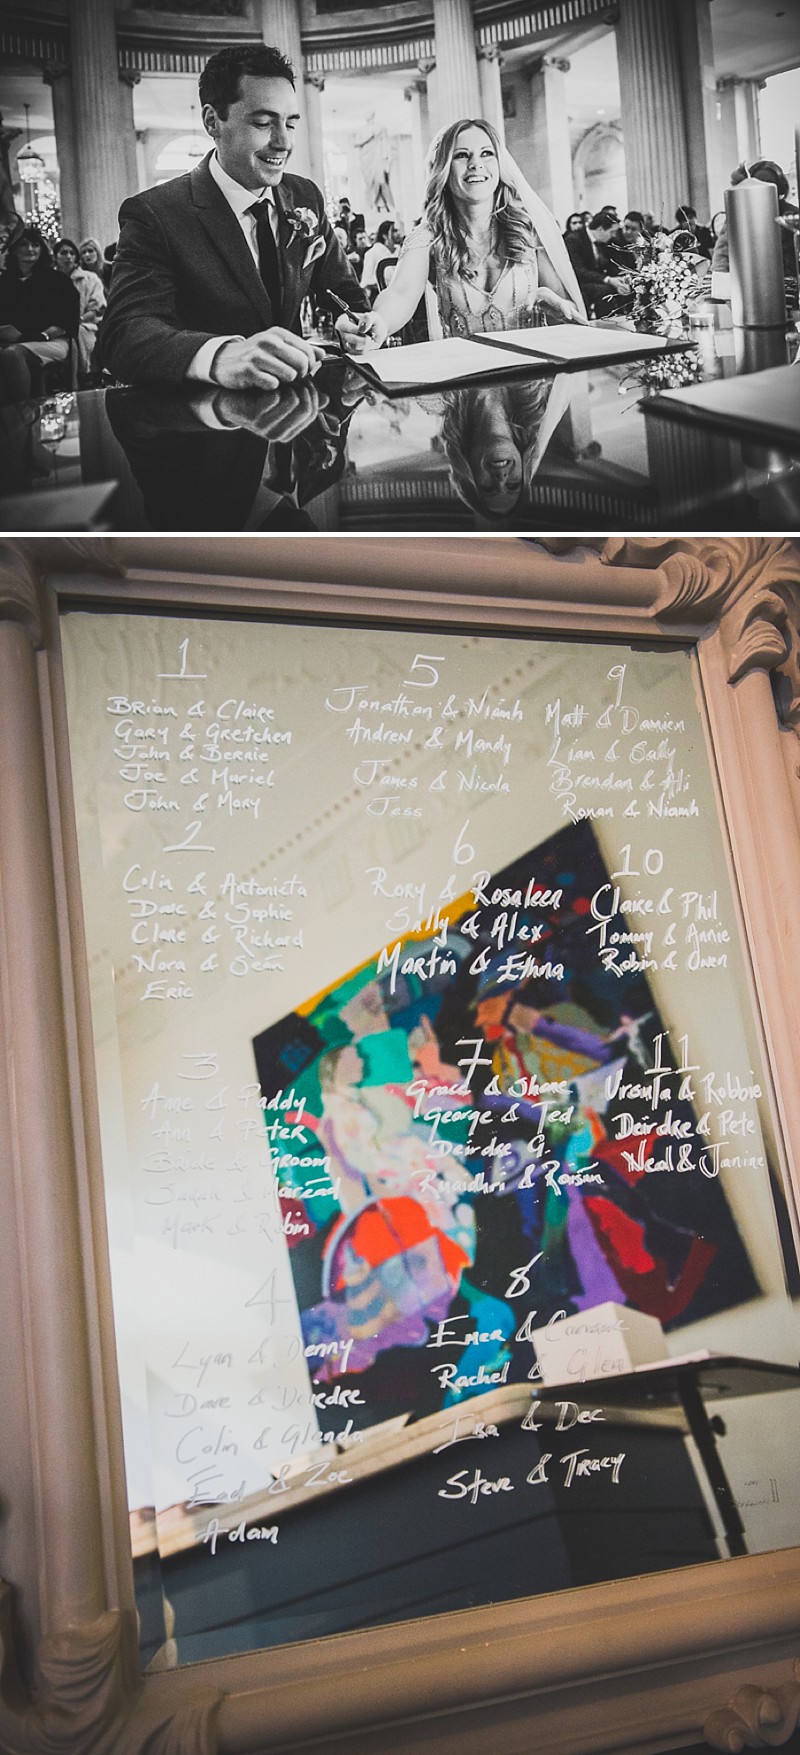 1
Brian & Claire
Gary & Gretchen
John & Bernie
Joe & Muriel
John & Mary
2
Colin & Antonieta
Dave & Sophie
Clare & Richard
Nora & Seán
Eric
3
Anne & Paddy
Ann & Peter
Bride & Groom
Sagan & Mairéad
Mark & Robin
4
Lynn & Denny
Dave & Deirdre
Colin & Glenda
& Zoe
Adam
5
Jonathan & Niamh
Andrew & Mandy
James & Nicola
Jess
6
Rory & Rosaleen
Sally & Alex
Martin & Ethna
7
Grace & Shane
George & Ted
Deirdre G.
Ruaidhri & Roisín
8
Emer &
Rachel & Glen
& Dec
Steve & Tracy
9
Matt & Damien
Liam & Sally
Brendan & Ali
Ronan & Niamh
10
Claire & Phil
Tommy & Annie
Robin & Owen
11
Ursula & Robbie
Deirdre & Pete
Neal & Janine